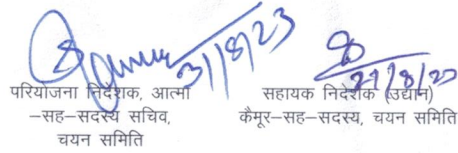 31/8/23
परियोजना निदेशक, आत्मा
–सह–सदस्य सचिव,
चयन समिति
सहायक निदेशक (उद्यान)
कैमूर–सह–सदस्य, चयन समिति